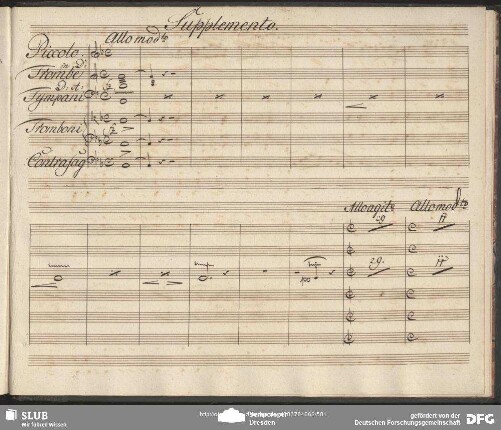 Supplemento.
Allo modto
Piccolo.
in D.
Trombe
D. et
Tympani
Tromboni
Contrafag
Allo agito
Allo modto
29.
11
29.
11
SLUB
Wir führen Wissen.
Semperoper
Dresden
gefördert von der
Deutschen Forschungsgemeinschaft
DFG